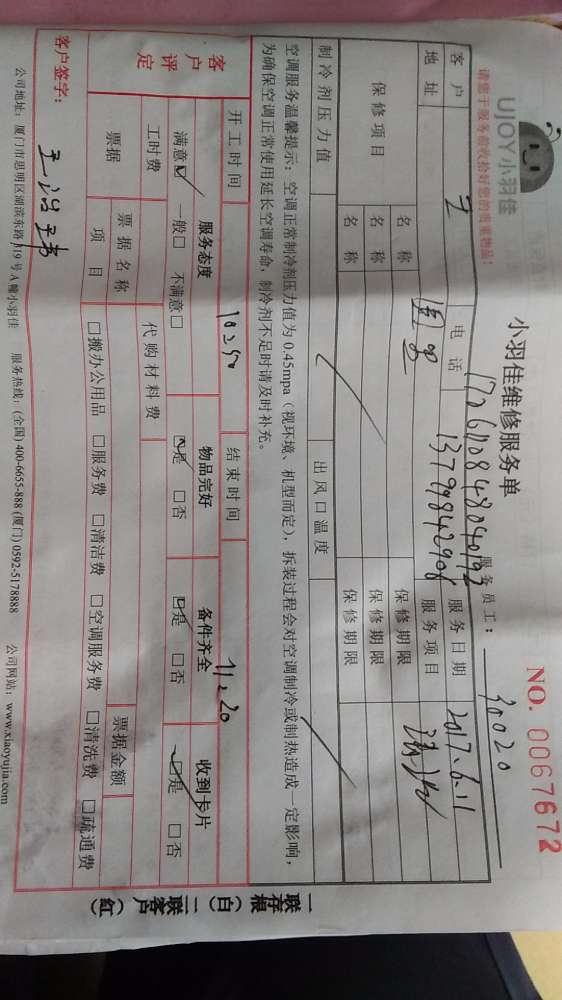 UJOY小羽佳
请您于服务前收拾好您的贵重物品!
小羽佳维修服务单
NO. 0067672
服务员工: 30020
1726110848040193
客户 王 电话 13799842908 服务日期 2017.6.11
地址 服务项目
保修项目 名称 保修期限
名称 保修期限
名称 保修期限
制冷剂压力值 出风口温度
空调服务温馨提示:空调正常制冷剂压力值为0.45mpa(视环境、机型而定),拆装过程会对空调制冷或制热造成一定影响,
为确保空调正常使用延长空调寿命,制冷剂不足时请及时补充。
开工时间 10:50 结束时间 11:20
客户评定 服务态度 物品完好 备件齐全 收到卡片
满意☑ 一般□ 不满意□ ☑是 □否 ☑是 □否 ☑是 □否
工时费 代购材料费
票据 票据名称 票据金额
项目 □搬办公用品 □服务费 □清洁费 □空调服务费 □清洗费 □疏通费
客户签字:
公司地址:厦门市思明区湖滨东路319号A幢小羽佳 服务热线:(全国)400-6655-888 (厦门) 0592-5178888 公司网站:www.xiaoyujia.com
一联存根(白) 二联客户(红)